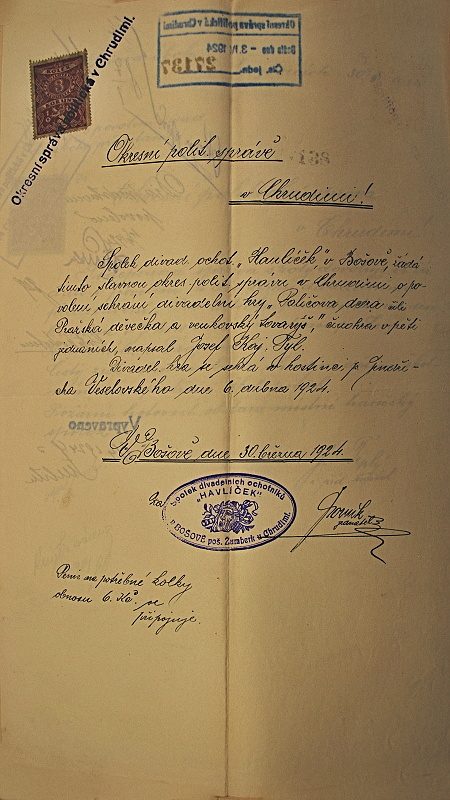 Okresní správa politická v Chrudimi.
Okresní správa politická v Chrudimi
Došlo dne – 3. IV. 1924
Čís. jedn. 27137
KOLEK
3
KORUNY
Okresní polit. správě
v Chrudimi!
Spolek divad. ochot. „Havlíček“, v Bošově, žádá
tímto slavnou okres. polit. správu v Chrudimi o po-
volení sehrání divadelní hry „Paličova dcera čili
Pražská děvečka a venkovský tovaryš“, činohra v pěti
jednáních, napsal Josef Kaj. Tyl.
Divadel. hra se sehrá v hostinci p. Jindři-
cha Veselovského dne 6. dubna 1924.
Vypraveno
V Bošově dne 30. března 1924.
Za
Spolek divadelních ochotníků
„HAVLÍČEK“
v BOŠOVĚ poš. Žumberk u Chrudimi.
jednatel
Peníz na potřebné kolky
obnosu 6. Kč se
připojuje.